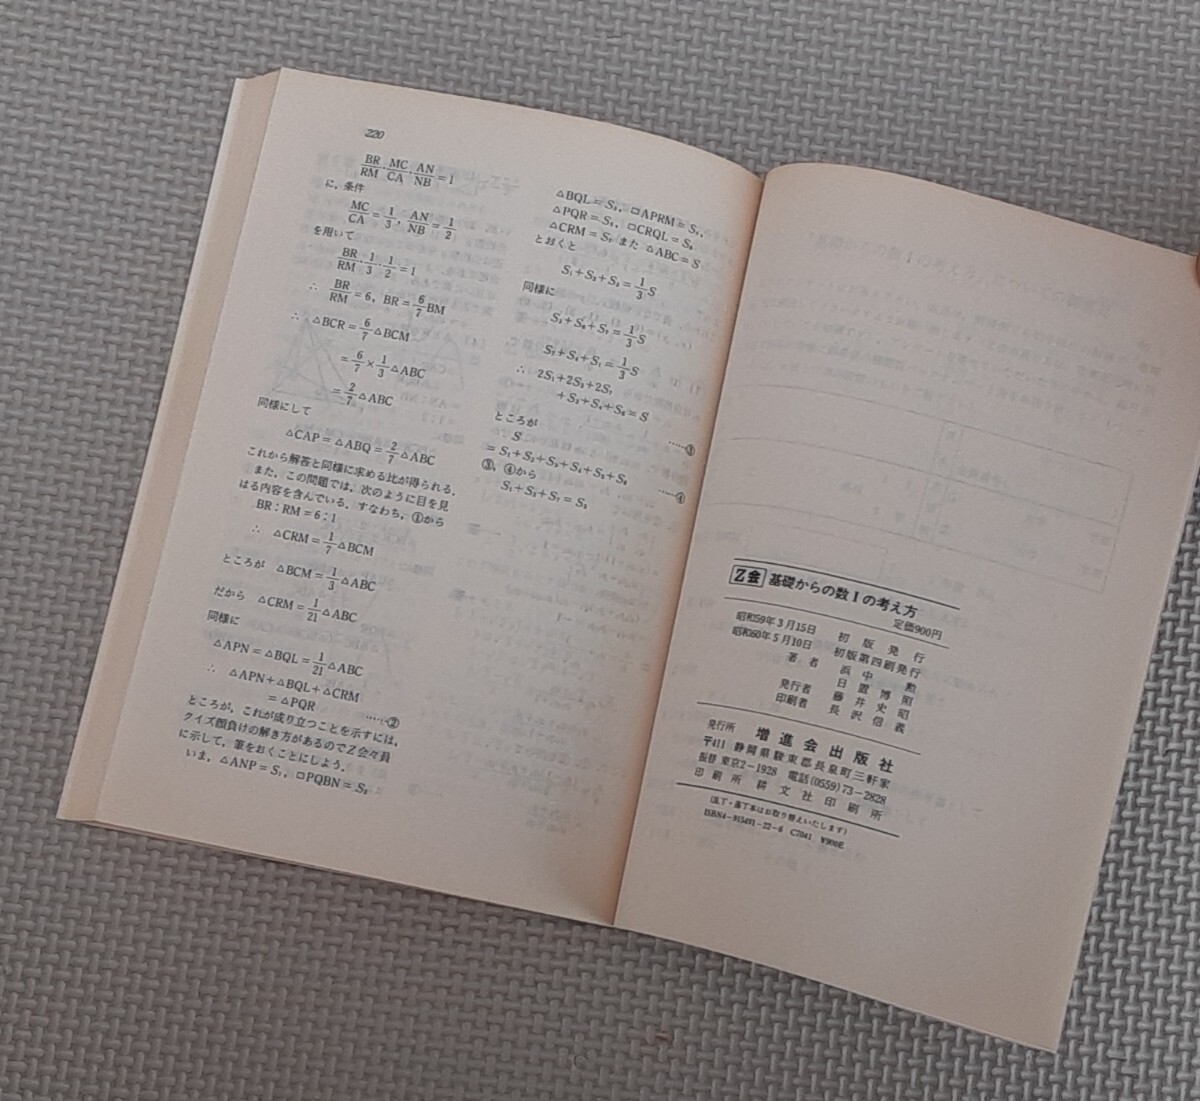 220
BR/RM・MC/CA・AN/NB=1
に，条件
MC/CA=1/3, AN/NB=1/2
を用いて
BR/RM・1/3・1/2=1
∴ BR/RM=6, BR=6/7BM
∴ △BCR=6/7△BCM
=6/7×1/3△ABC
=2/7△ABC
同様にして
△CAP=△ABQ=2/7△ABC
これから解答と同様に求める比が得られる．
また，この問題では，次のように目を見
はる内容を含んでいる．すなわち，①から
BR：RM=6：1
∴ △CRM=1/7△BCM
ところが △BCM=1/3△ABC
だから △CRM=1/21△ABC
同様に
△APN=△BQL=1/21△ABC
∴ △APN+△BQL+△CRM
=△PQR ……②
ところが，これが成り立つことを示すには，
クイズ顔負けの解き方があるのでZ会々員
に示して，筆をおくことにしよう．
いま，△ANP=S₁，□PQBN=S₂
△BQL=S₃，□APRM=S₄，
△PQR=S₅，□CRQL=S₆
△CRM=S₇ また △ABC=S
とおくと
S₁+S₂+S₃=1/3S
同様に
S₃+S₆+S₇=1/3S
S₇+S₄+S₁=1/3S
∴ 2S₁+2S₃+2S₇
+S₂+S₄+S₆=S
……③
ところが
S
=S₁+S₂+S₃+S₄+S₅+S₆+S₇
……④
③，④から
S₁+S₃+S₇=S₅
Z会 基礎からの数Ⅰの考え方
定価900円
昭和59年3月15日 初版発行
昭和60年5月10日 初版第四刷発行
著者 浜中 勲
日置博昭
発行者 藤井史昭
印刷者 長沢信義
発行所 増進会出版社
〒411 静岡県駿東郡長泉町三軒家
振替 東京2-1928 電話(0559)73-2828
印刷所 耕文社印刷所
(乱丁・落丁本はお取り替えいたします)
ISBN4-915491-22-6 C7041 ¥900E